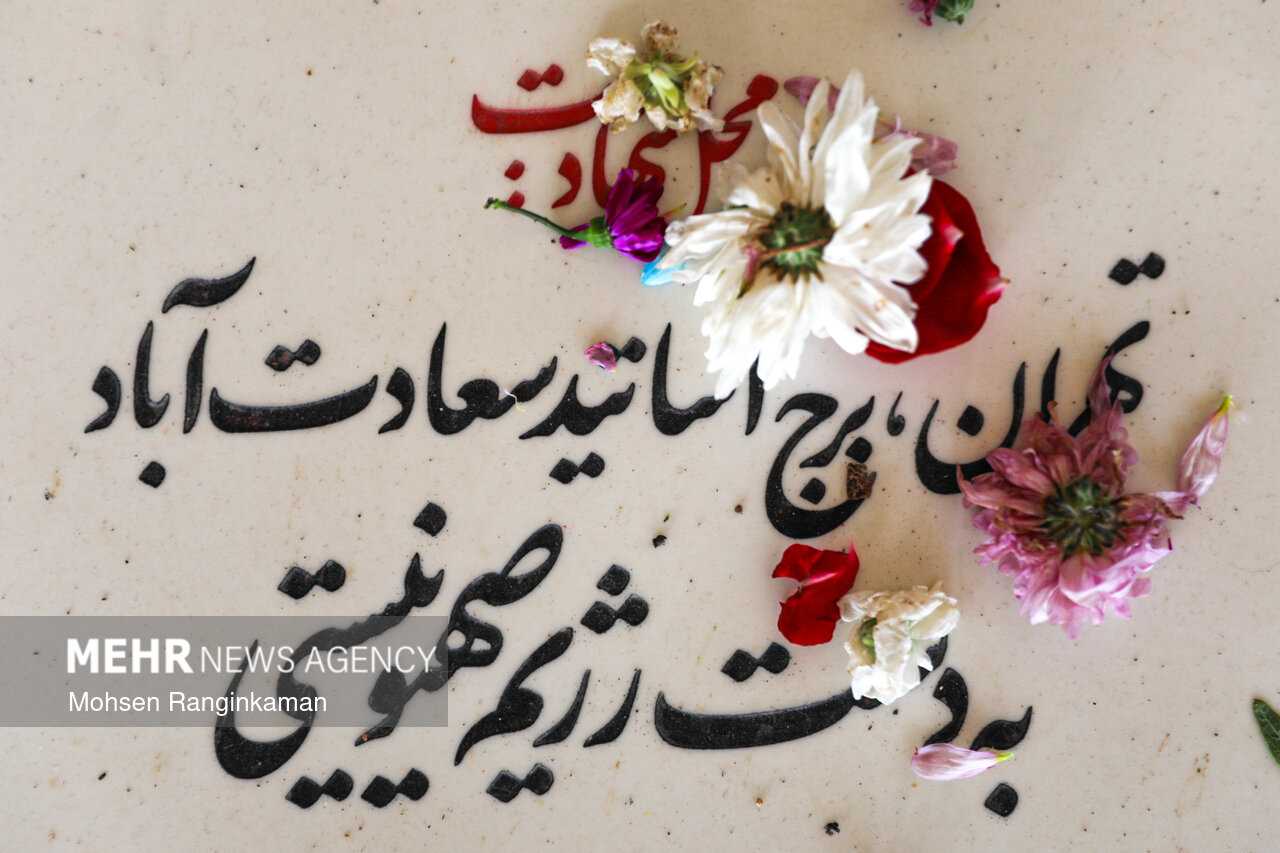 محل شهادت:
تهران، برج اساتید سعادت آباد
به دست رژیم صهیونیستی
MEHR NEWS AGENCY
Mohsen Ranginkaman